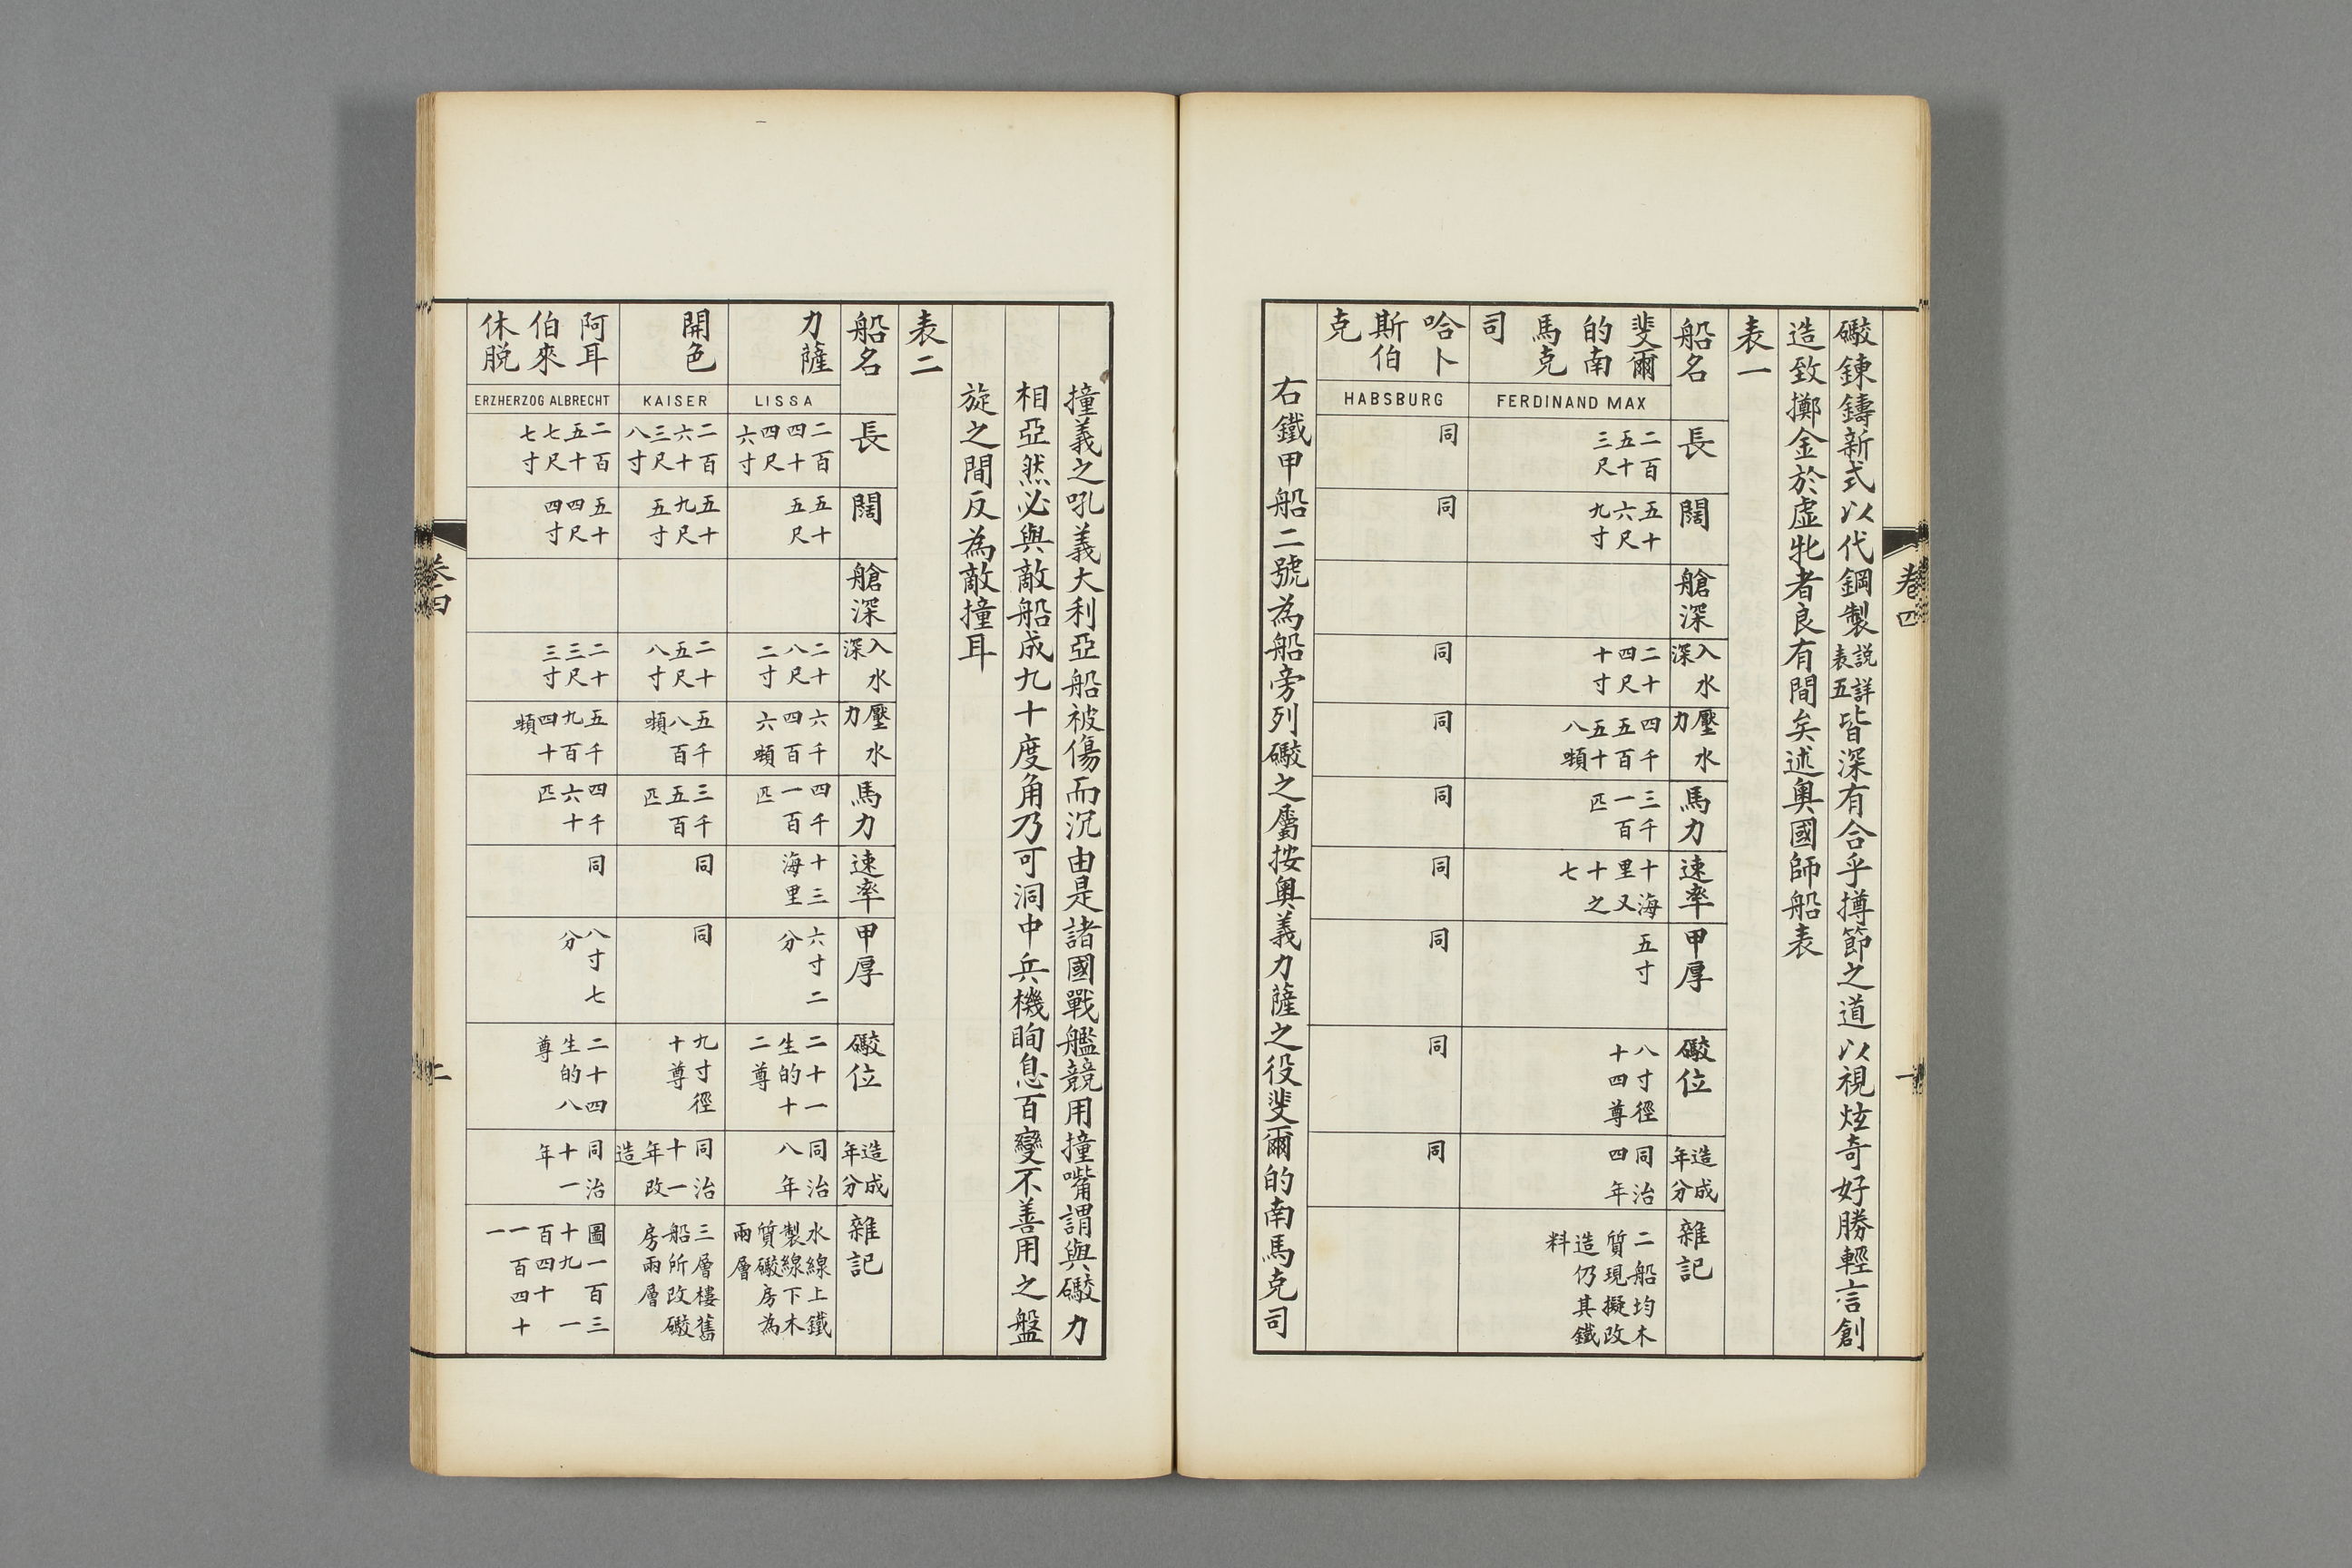 礮鍊鑄新式以代鋼製説詳表五皆深有合乎撙節之道以視炫奇好勝輕言創
造致擲金於虛牝者良有間矣述奧國師船表
表一
船名
長
闊
艙深
入水深
壓水力
馬力
速率
甲厚
礮位
造成年分
雜記
斐爾的南馬克司
FERDINAND MAX
二百五十三尺
五十六尺九寸
二十四尺十寸
四千五百五十八頓
三千一百匹
十海里又十之七
五寸
八寸徑十四尊
同治四年
二船均木質現擬改造仍其鐵料
哈卜斯伯克
HABSBURG
同
同
同
同
同
同
同
同
同
右鐵甲船二號為船旁列礮之屬按奧義力薩之役斐爾的南馬克司
卷四
一
撞義之吼義大利亞船被傷而沉由是諸國戰艦競用撞嘴謂與礮力
相亞然必與敵船成九十度角乃可洞中兵機眴息百變不善用之盤
旋之間反為敵撞耳
表二
船名
長
闊
艙深
入水深
壓水力
馬力
速率
甲厚
礮位
造成年分
雜記
力薩
LISSA
二百四十四尺六寸
五十五尺
二十八尺二寸
六千四百六頓
四千一百匹
十三海里
六寸二分
二十一生的十二尊
同治八年
水線上鐵製線下木質礮房為兩層
開色
KAISER
二百六十三尺八寸
五十九尺五寸
二十五尺八寸
五千八百頓
三千五百匹
同
同
九寸徑十尊
同治十一年改造
三層樓舊船所改礮房兩層
阿耳伯來休脱
ERZHERZOG ALBRECHT
二百五十七尺七寸
五十四尺四寸
二十三尺三寸
五千九百四十頓
四千六十匹
同
八寸七分
二十四生的八尊
同治十一年
圖一百三十九一百四十一百四十一
卷四
二